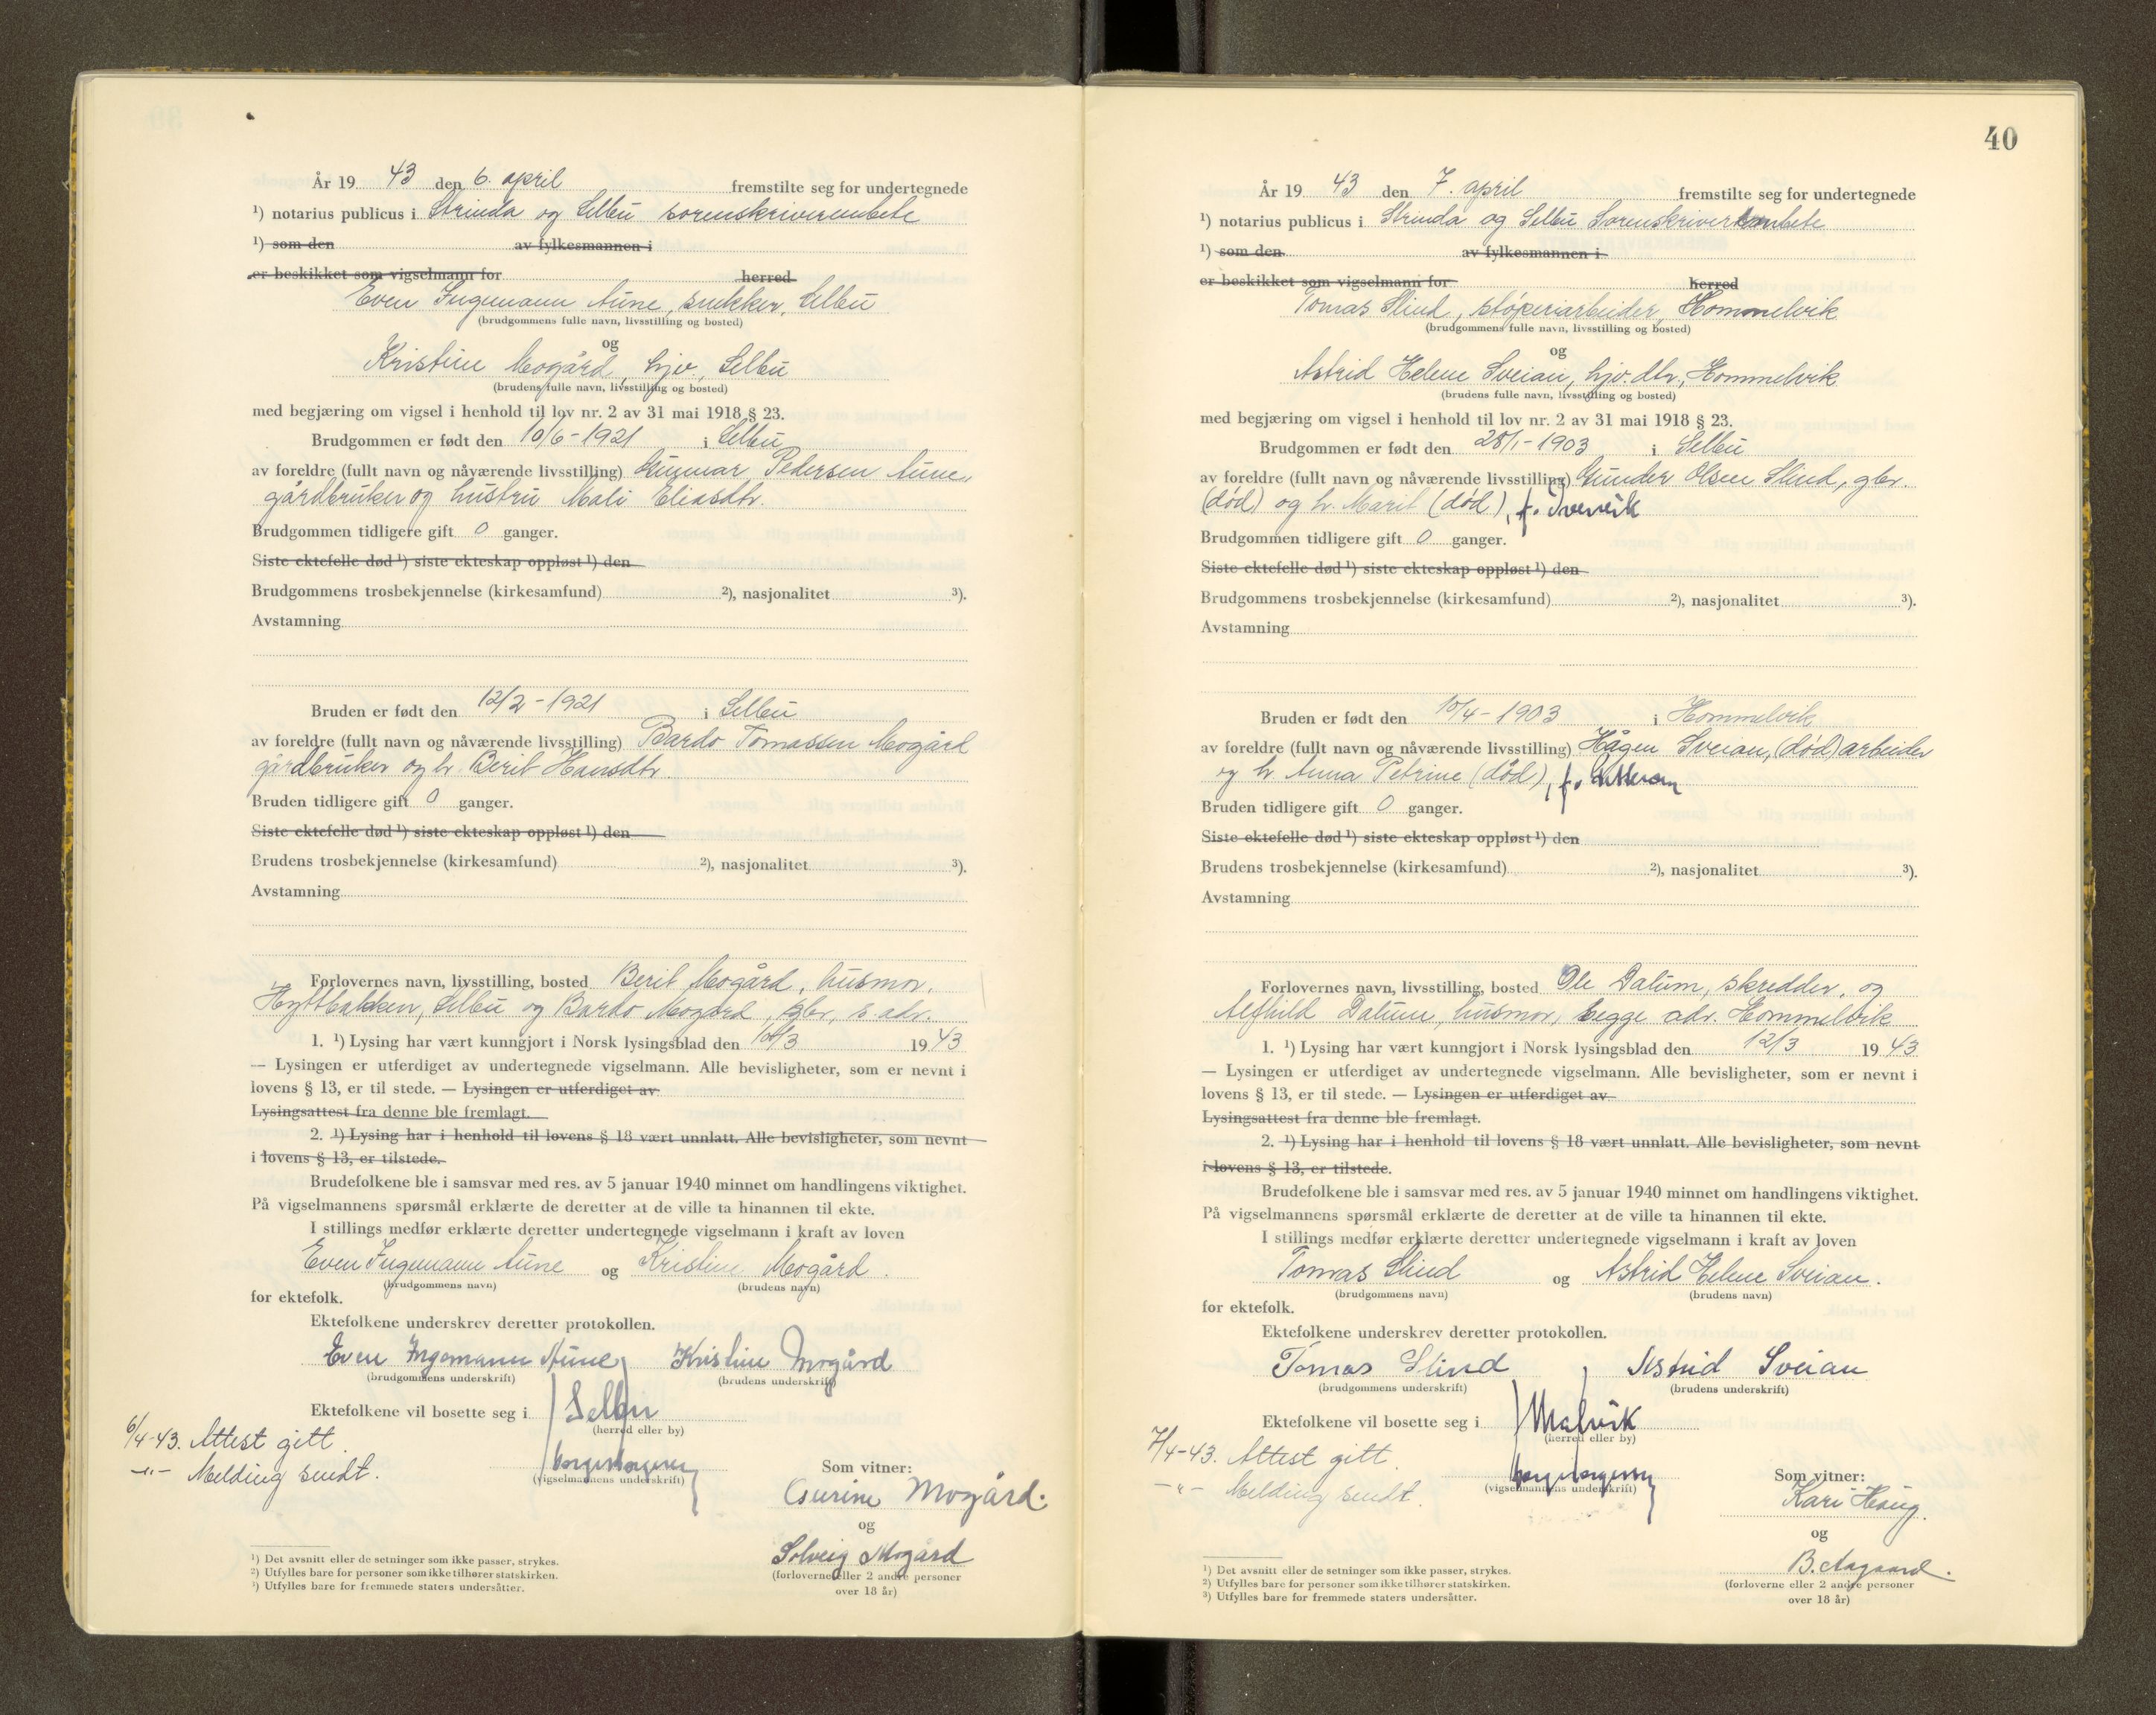 År 19 43 den 6. april fremstilte seg for undertegnede
¹) notarius publicus i Strinda og Selbu sorenskriverembete
¹) som den av fylkesmannen i
er beskikket som vigselmann for herred
Even Ingemann Aune, snekker, Selbu
(brudgommens fulle navn, livsstilling og bosted)
og
Kristine Mogård, hjv., Selbu
(brudens fulle navn, livsstilling og bosted)
med begjæring om vigsel i henhold til lov nr. 2 av 31 mai 1918 § 23.
Brudgommen er født den 10/6-1921 i Selbu
av foreldre (fullt navn og nåværende livsstilling) Gunnar Pedersen Aune,
gårdbruker og hustru Mali Eliasdtr.
Brudgommen tidligere gift 0 ganger.
Siste ektefelle død ¹) siste ekteskap oppløst ¹) den
Brudgommens trosbekjennelse (kirkesamfund) ²), nasjonalitet ³).
Avstamning
Bruden er født den 12/2-1921 i Selbu
av foreldre (fullt navn og nåværende livsstilling) Bardo Tomassen Mogård
gårdbruker og h. Berit Hansdtr.
Bruden tidligere gift 0 ganger.
Siste ektefelle død ¹) siste ekteskap oppløst ¹) den
Brudens trosbekjennelse (kirkesamfund) ²), nasjonalitet ³).
Avstamning
Forlovernes navn, livsstilling, bosted Berit Mogård, husmor,
Hyttbakken, Selbu og Bardo Mogård, gbr, s. adr.
1. ¹) Lysing har vært kunngjort i Norsk lysingsblad den /3 19 43
— Lysingen er utferdiget av undertegnede vigselmann. Alle bevisligheter, som er nevnt i
lovens § 13, er til stede. — Lysingen er utferdiget av
Lysingsattest fra denne ble fremlagt.
2. ¹) Lysing har i henhold til lovens § 18 vært unnlatt. Alle bevisligheter, som nevnt
i lovens § 13, er tilstede.
Brudefolkene ble i samsvar med res. av 5 januar 1940 minnet om handlingens viktighet.
På vigselmannens spørsmål erklærte de deretter at de ville ta hinannen til ekte.
I stillings medfør erklærte deretter undertegnede vigselmann i kraft av loven
Even Ingemann Aune og Kristine Mogård.
(brudgommens navn) (brudens navn)
for ektefolk.
Ektefolkene underskrev deretter protokollen.
Even Ingemann Aune, Kristine Mogård
(brudgommens underskrift) (brudens underskrift)
Ektefolkene vil bosette seg i Selbu
(herred eller by)
6/4-43. Attest gitt.
—"— Melding sendt.
(vigselmannens underskrift)
Som vitner:
Gurine Mogård.
og
Solveig Mogård
(forloverne eller 2 andre personer
over 18 år)
¹) Det avsnitt eller de setninger som ikke passer, strykes.
²) Utfylles bare for personer som ikke tilhører statskirken.
³) Utfylles bare for fremmede staters undersåtter.
40
År 19 43 den 7. april fremstilte seg for undertegnede
¹) notarius publicus i Strinda og Selbu Sorenskriverembete
¹) som den av fylkesmannen i
er beskikket som vigselmann for herred
Tomas Slind, støperiarbeider, Hommelvik
(brudgommens fulle navn, livsstilling og bosted)
og
Astrid Helene Sveian, hjv. dtr, Hommelvik
(brudens fulle navn, livsstilling og bosted)
med begjæring om vigsel i henhold til lov nr. 2 av 31 mai 1918 § 23.
Brudgommen er født den 28/1-1903 i Selbu
av foreldre (fullt navn og nåværende livsstilling) Gunder Olsen Slind, gbr.
(død) og h. Marit (død), f.
Brudgommen tidligere gift 0 ganger.
Siste ektefelle død ¹) siste ekteskap oppløst ¹) den
Brudgommens trosbekjennelse (kirkesamfund) ²), nasjonalitet ³).
Avstamning
Bruden er født den 10/4-1903 i Hommelvik
av foreldre (fullt navn og nåværende livsstilling) Hågen Sveian, (død) arbeider
og h. Anna Petrine (død), f.
Bruden tidligere gift 0 ganger.
Siste ektefelle død ¹) siste ekteskap oppløst ¹) den
Brudens trosbekjennelse (kirkesamfund) ²), nasjonalitet ³).
Avstamning
Forlovernes navn, livsstilling, bosted Ole Dalum, skredder, og
Alfhild Dalum, husmor, begge adr. Hommelvik
1. ¹) Lysing har vært kunngjort i Norsk lysingsblad den 12/3 19 43
— Lysingen er utferdiget av undertegnede vigselmann. Alle bevisligheter, som er nevnt i
lovens § 13, er til stede. — Lysingen er utferdiget av
Lysingsattest fra denne ble fremlagt.
2. ¹) Lysing har i henhold til lovens § 18 vært unnlatt. Alle bevisligheter, som nevnt
i lovens § 13, er tilstede.
Brudefolkene ble i samsvar med res. av 5 januar 1940 minnet om handlingens viktighet.
På vigselmannens spørsmål erklærte de deretter at de ville ta hinannen til ekte.
I stillings medfør erklærte deretter undertegnede vigselmann i kraft av loven
Tomas Slind og Astrid Helene Sveian.
(brudgommens navn) (brudens navn)
for ektefolk.
Ektefolkene underskrev deretter protokollen.
Tomas Slind, Astrid Sveian
(brudgommens underskrift) (brudens underskrift)
Ektefolkene vil bosette seg i Malvik
(herred eller by)
7/4-43. Attest gitt.
—"— Melding sendt.
(vigselmannens underskrift)
Som vitner:
Kari Haug.
og
B. Aagaard.
(forloverne eller 2 andre personer
over 18 år)
¹) Det avsnitt eller de setninger som ikke passer, strykes.
²) Utfylles bare for personer som ikke tilhører statskirken.
³) Utfylles bare for fremmede staters undersåtter.